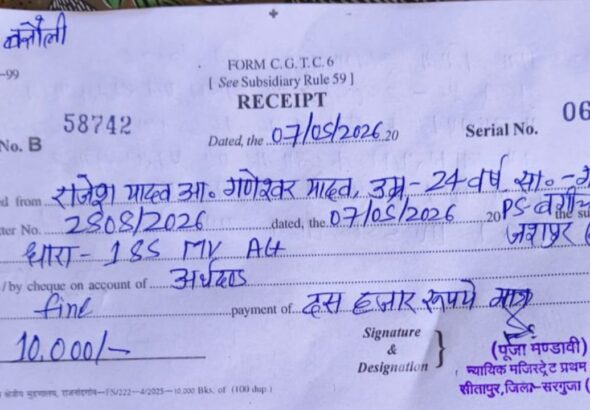 बतौली
-99
FORM C.G.T.C.6
[ See Subsidiary Rule 59 ]
RECEIPT
No. B 58742
Dated, the 07/05/2026 20
Serial No. 06
ed from राजेश यादव आ० गणेश्वर यादव, उम्र-24 वर्ष सा०-
ter No. 2808/2026 dated, the 07/05/2026 20 PS-बगीचा the su
धारा-185 MV Act जशपुर (
/by cheque on account of अर्थदण्ड
fine payment of दस हजार रूपये मात्र
10,000/-
Signature
&
Designation
(पूजा मण्डावी)
न्यायिक मजिस्ट्रेट प्रथम
सीतापुर, जिला-सरगुजा (
क्षेत्रीय मुद्रणालय, राजनांदगांव—FS/222—4/2025—10,000 Bks. of (100 dup.)